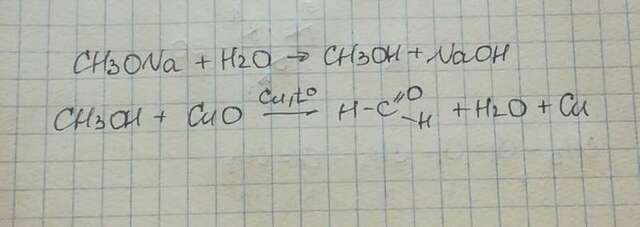 CH3ONa + H2O → CH3OH + NaOH
CH3OH + CuO Cu,t° → H-C=O -H + H2O + Cu